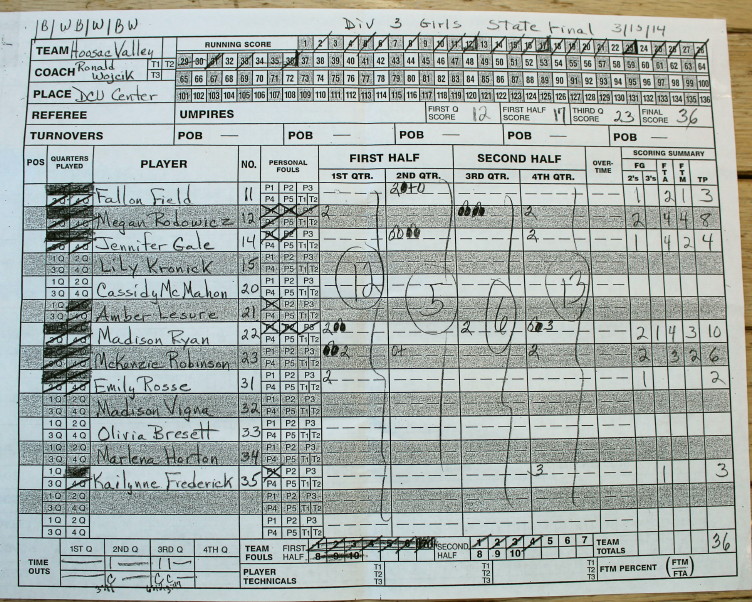 1B/WB/W/BW
Div 3 Girls State Final 3/15/14
TEAM Hoosac Valley T1 T2 RUNNING SCORE 1 2 3 4 5 6 7 8 9 10 11 12 13 14 15 16 17 18 19 20 21 22 23 24 25 26 27 28
COACH Ronald Wojcik T3 29 30 31 32 33 34 35 36 37 38 39 40 41 42 43 44 45 46 47 48 49 50 51 52 53 54 55 56 57 58 59 60 61 62 63 64
65 66 67 68 69 70 71 72 73 74 75 76 77 78 79 80 81 82 83 84 85 86 87 88 89 90 91 92 93 94 95 96 97 98 99 100
PLACE DCU Center 101 102 103 104 105 106 107 108 109 110 111 112 113 114 115 116 117 118 119 120 121 122 123 124 125 126 127 128 129 130 131 132 133 134 135 136
REFEREE UMPIRES FIRST Q SCORE 12 FIRST HALF SCORE 17 THIRD Q SCORE 23 FINAL SCORE 36
TURNOVERS POB — POB — POB — POB — POB —
POS QUARTERS PLAYED PLAYER NO. PERSONAL FOULS FIRST HALF SECOND HALF OVER-TIME SCORING SUMMARY
1ST QTR. 2ND QTR. 3RD QTR. 4TH QTR. FG 2's 3's FTA FTM TP
Fallon Field 11 P1 P2 P3 P4 P5 T1 T2 1 2 1 3
Megan Rodowicz 12 2 2 2 4 4 8
Jennifer Gale 14 2 1 4 2 4
1Q 2Q 3Q 4Q Lily Kronick 15 P1 P2 P3 P4 P5 T1 T2
1Q 2Q 3Q 4Q Cassidy McMahon 20 P1 P2 P3 P4 P5 T1 T2
Amber Lesure 21
12 5 6 13
Madison Ryan 22 2 2 3 2 1 4 3 10
McKenzie Robinson 23 2 2 2 3 2 6
Emily Rosse 31 P1 P2 P3 P4 P5 T1 T2 2 1 2
1Q 2Q 3Q 4Q Madison Vigna 32 P1 P2 P3 P4 P5 T1 T2
1Q 2Q 3Q 4Q Olivia Bresett 33 P1 P2 P3 P4 P5 T1 T2
1Q 2Q 3Q 4Q Marlena Horton 34 P1 P2 P3 P4 P5 T1 T2
Kailynne Frederick 35 P2 P3 P4 P5 T1 T2 3 1 3
1Q 2Q 3Q 4Q P1 P2 P3 P4 P5 T1 T2
1Q 2Q 3Q 4Q P1 P2 P3 P4 P5 T1 T2
TIME OUTS 1ST Q 2ND Q 3RD Q 4TH Q
TEAM FOULS FIRST HALF 1 2 3 4 5 6 7 8 9 10 SECOND HALF 1 2 3 4 5 6 7 8 9 10 TEAM TOTALS 36
PLAYER TECHNICALS T1 T2 T3 T1 T2 T3 T1 T2 T3 FTM PERCENT (FTM/FTA)